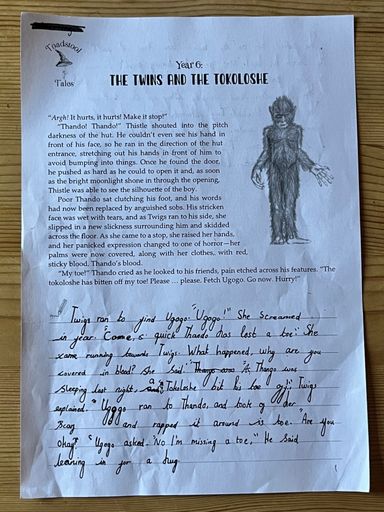 Toadstool
Tales
Year 6:
THE TWINS AND THE TOKOLOSHE
"Argh! It hurts, it hurts! Make it stop!"
"Thando! Thando!" Thistle shouted into the pitch
darkness of the hut. He couldn't even see his hand in
front of his face, so he ran in the direction of the hut
entrance, stretching out his hands in front of him to
avoid bumping into things. Once he found the door,
he pushed as hard as he could to open it and, as soon
as the bright moonlight shone in through the opening,
Thistle was able to see the silhouette of the boy.
Poor Thando sat clutching his foot, and his words
had now been replaced by anguished sobs. His stricken
face was wet with tears, and as Twigs ran to his side, she
slipped in a new slickness surrounding him and skidded
across the floor. As she came to a stop, she raised her hands,
and her panicked expression changed to one of horror—her
palms were now covered, along with her clothes, with red,
sticky blood. Thando's blood.
"My toe!" Thando cried as he looked to his friends, pain etched across his features. "The
tokoloshe has bitten off my toe! Please … please. Fetch Ugogo. Go now. Hurry!"
Twigs ran to find Ugogo. "Ugogo!" She screamed
in fear. "Come, quick Thando has lost a toe." She
came running towards Twigs. What happened, why are you
covered in blood? She said. Thando was
sleeping last night, a Tokoloshe bit his toe off! Twigs
explained. "Ugogo ran to Thando, and took of her
and rapped it around is toe. "Are you
Okay?" Ugogo asked. "No I'm missing a toe," He said
leaning in for a hug.